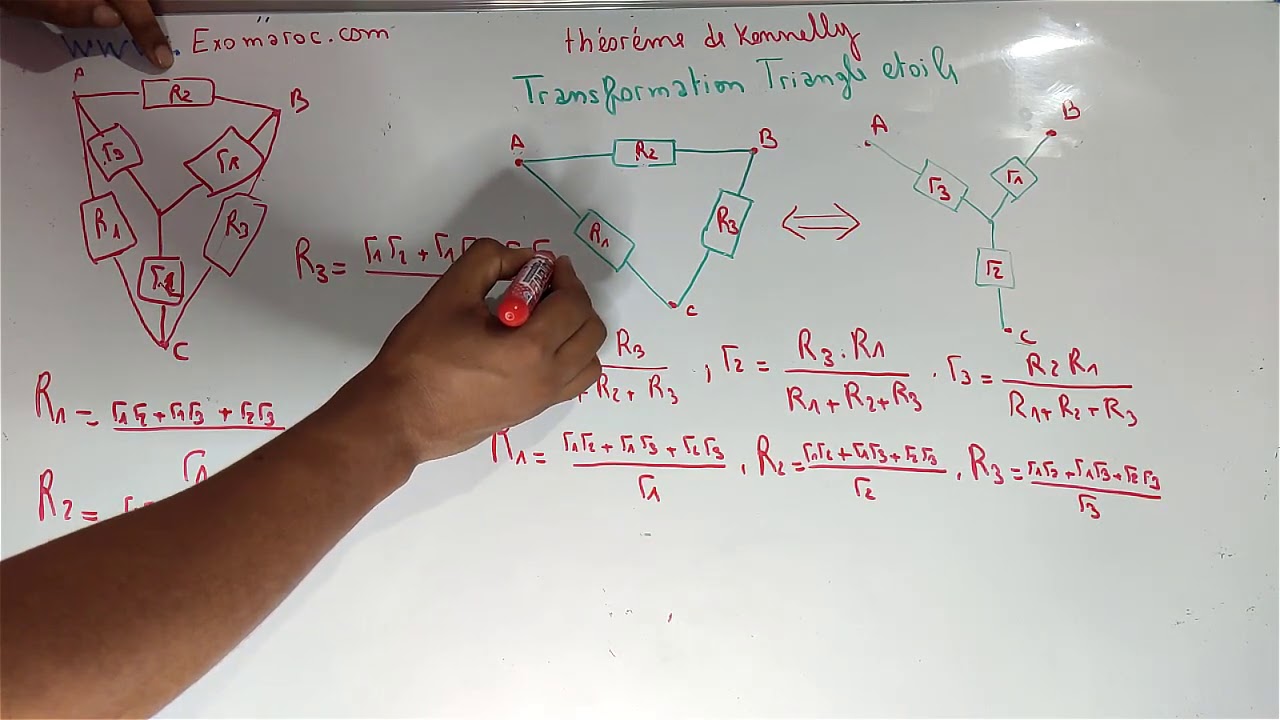 www. Exomaroc.com
théoréme de Kennelly
Transformation Triangle etoile
A R2 B
r3 r1
R1 R3
r2
C
A R2 B
R1 R3
C
A B
r3 r1
r2
C
R3 = r1r2 + r1
R1 = r1r2 + r1r3 + r2r3
r1
R2 =
R3
R2 + R3
, r2 = R3 . R1
R1 + R2 + R3
. r3 = R2 R1
R1 + R2 + R3
R1 = r1r2 + r1r3 + r2r3
r1
, R2 = r1r2 + r1r3 + r2r3
r2
, R3 = r1r2 + r1r3 + r2r3
r3